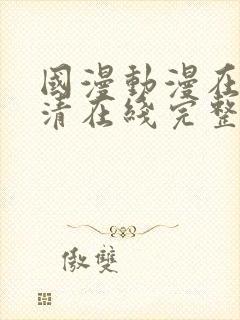 國漫動漫在
清在綫完整
傲雙